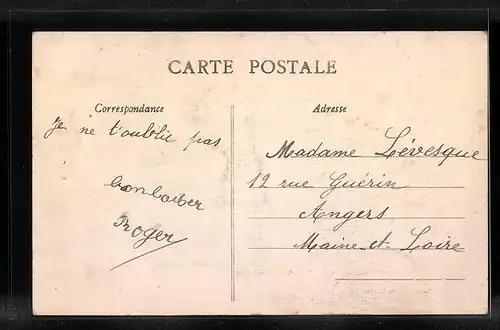 CARTE POSTALE
Correspondance
Je ne t'oublie pas
bon baiser
Roger
Adresse
Madame Lévesque
12 rue Guérin
Angers
Maine-et-Loire